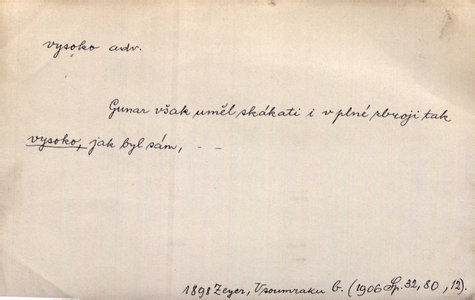 vysoko adv.
Gunar však uměl skákati i v plné zbroji tak
vysoko, jak byl sám, - -
1898 Zeyer, V soumraku b. (1906 Sp. 32, 80, 12).